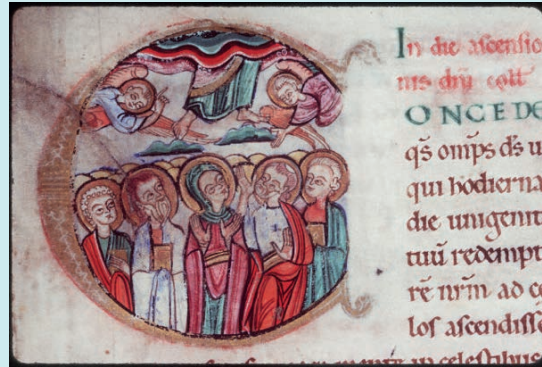 In die ascensio
nis dñi coll
ONCEDE
qs̄ omp̄s ds̄ u
qui hodierna
die unigenit
tuū redempt
rē nr̄m ad ce
los ascendisse
in celestibus